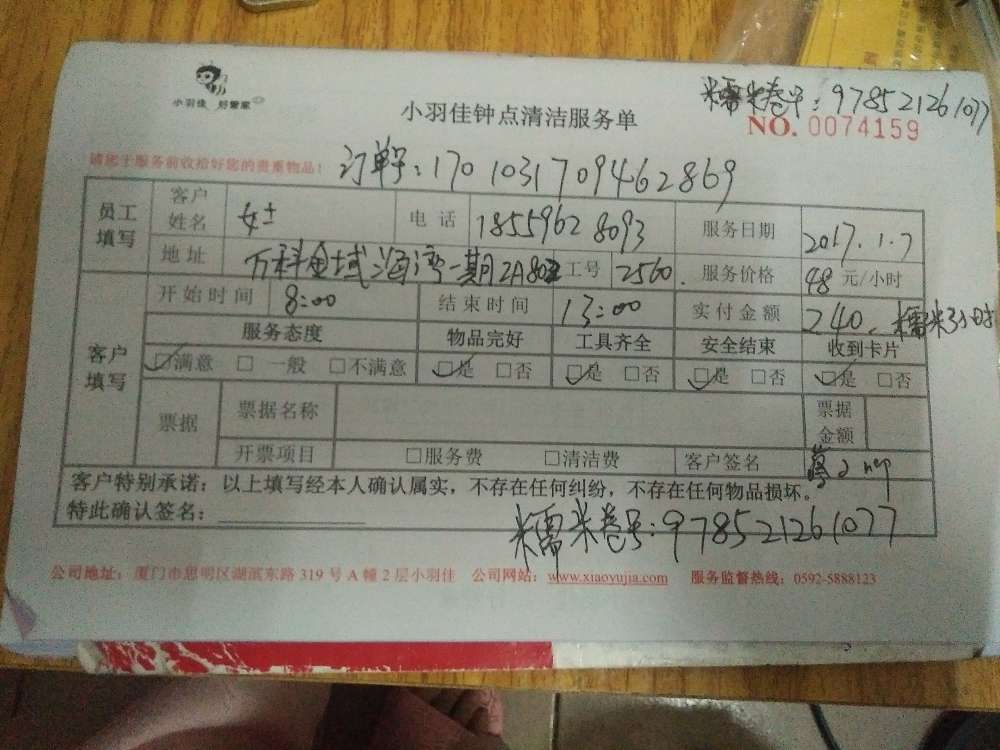 小羽佳 好管家
糯米卷号:978521261077
小羽佳钟点清洁服务单
NO. 0074159
请您于服务前收拾好您的贵重物品!
订单号:1701031709462869
员工填写 客户姓名 女士 电话 18559628093 服务日期 2017.1.7
地址 万科金域海湾一期2A802 工号 2560. 服务价格 48 元/小时
客户填写 开始时间 8:00 结束时间 13:00 实付金额 240. 糯米3小时
服务态度 物品完好 工具齐全 安全结束 收到卡片
☑满意 □ 一般 □不满意 ☑是 □否 ☑是 □否 ☑是 □否 ☑是 □否
票据 票据名称 票据金额
开票项目 □服务费 □清洁费 客户签名
客户特别承诺:以上填写经本人确认属实,不存在任何纠纷,不存在任何物品损坏。
特此确认签名:
糯米卷号:978521261077
公司地址:厦门市思明区湖滨东路 319 号 A 幢 2 层小羽佳 公司网站:www.xiaoyujia.com 服务监督热线:0592-5888123